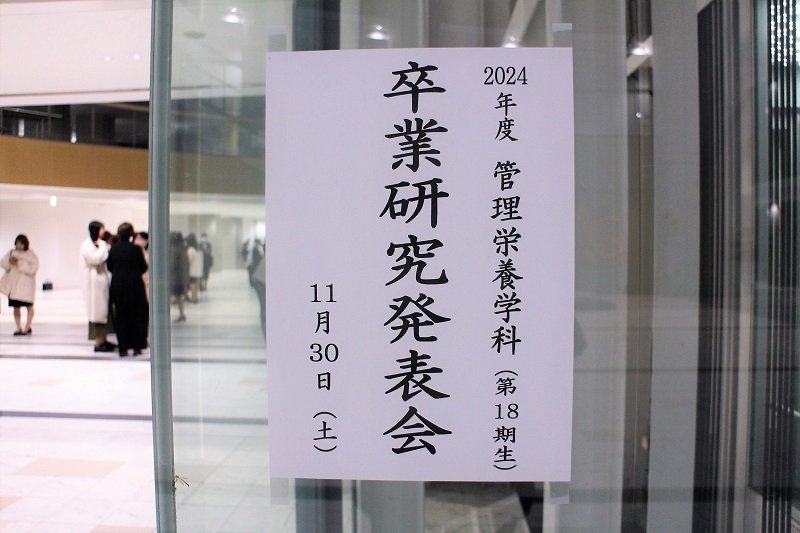 2024年度 管理栄養学科（第18期生）
卒業研究発表会
11月30日（土）